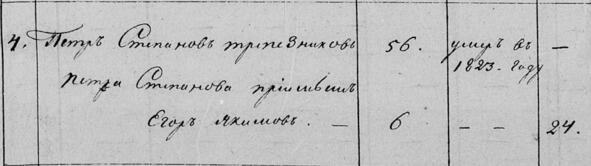 4. Петръ Степановъ трапезниковъ 56. умръ въ —
1823. году
Петра Степанова пріимышъ
Егоръ Якимовъ. — 6 — — 24.